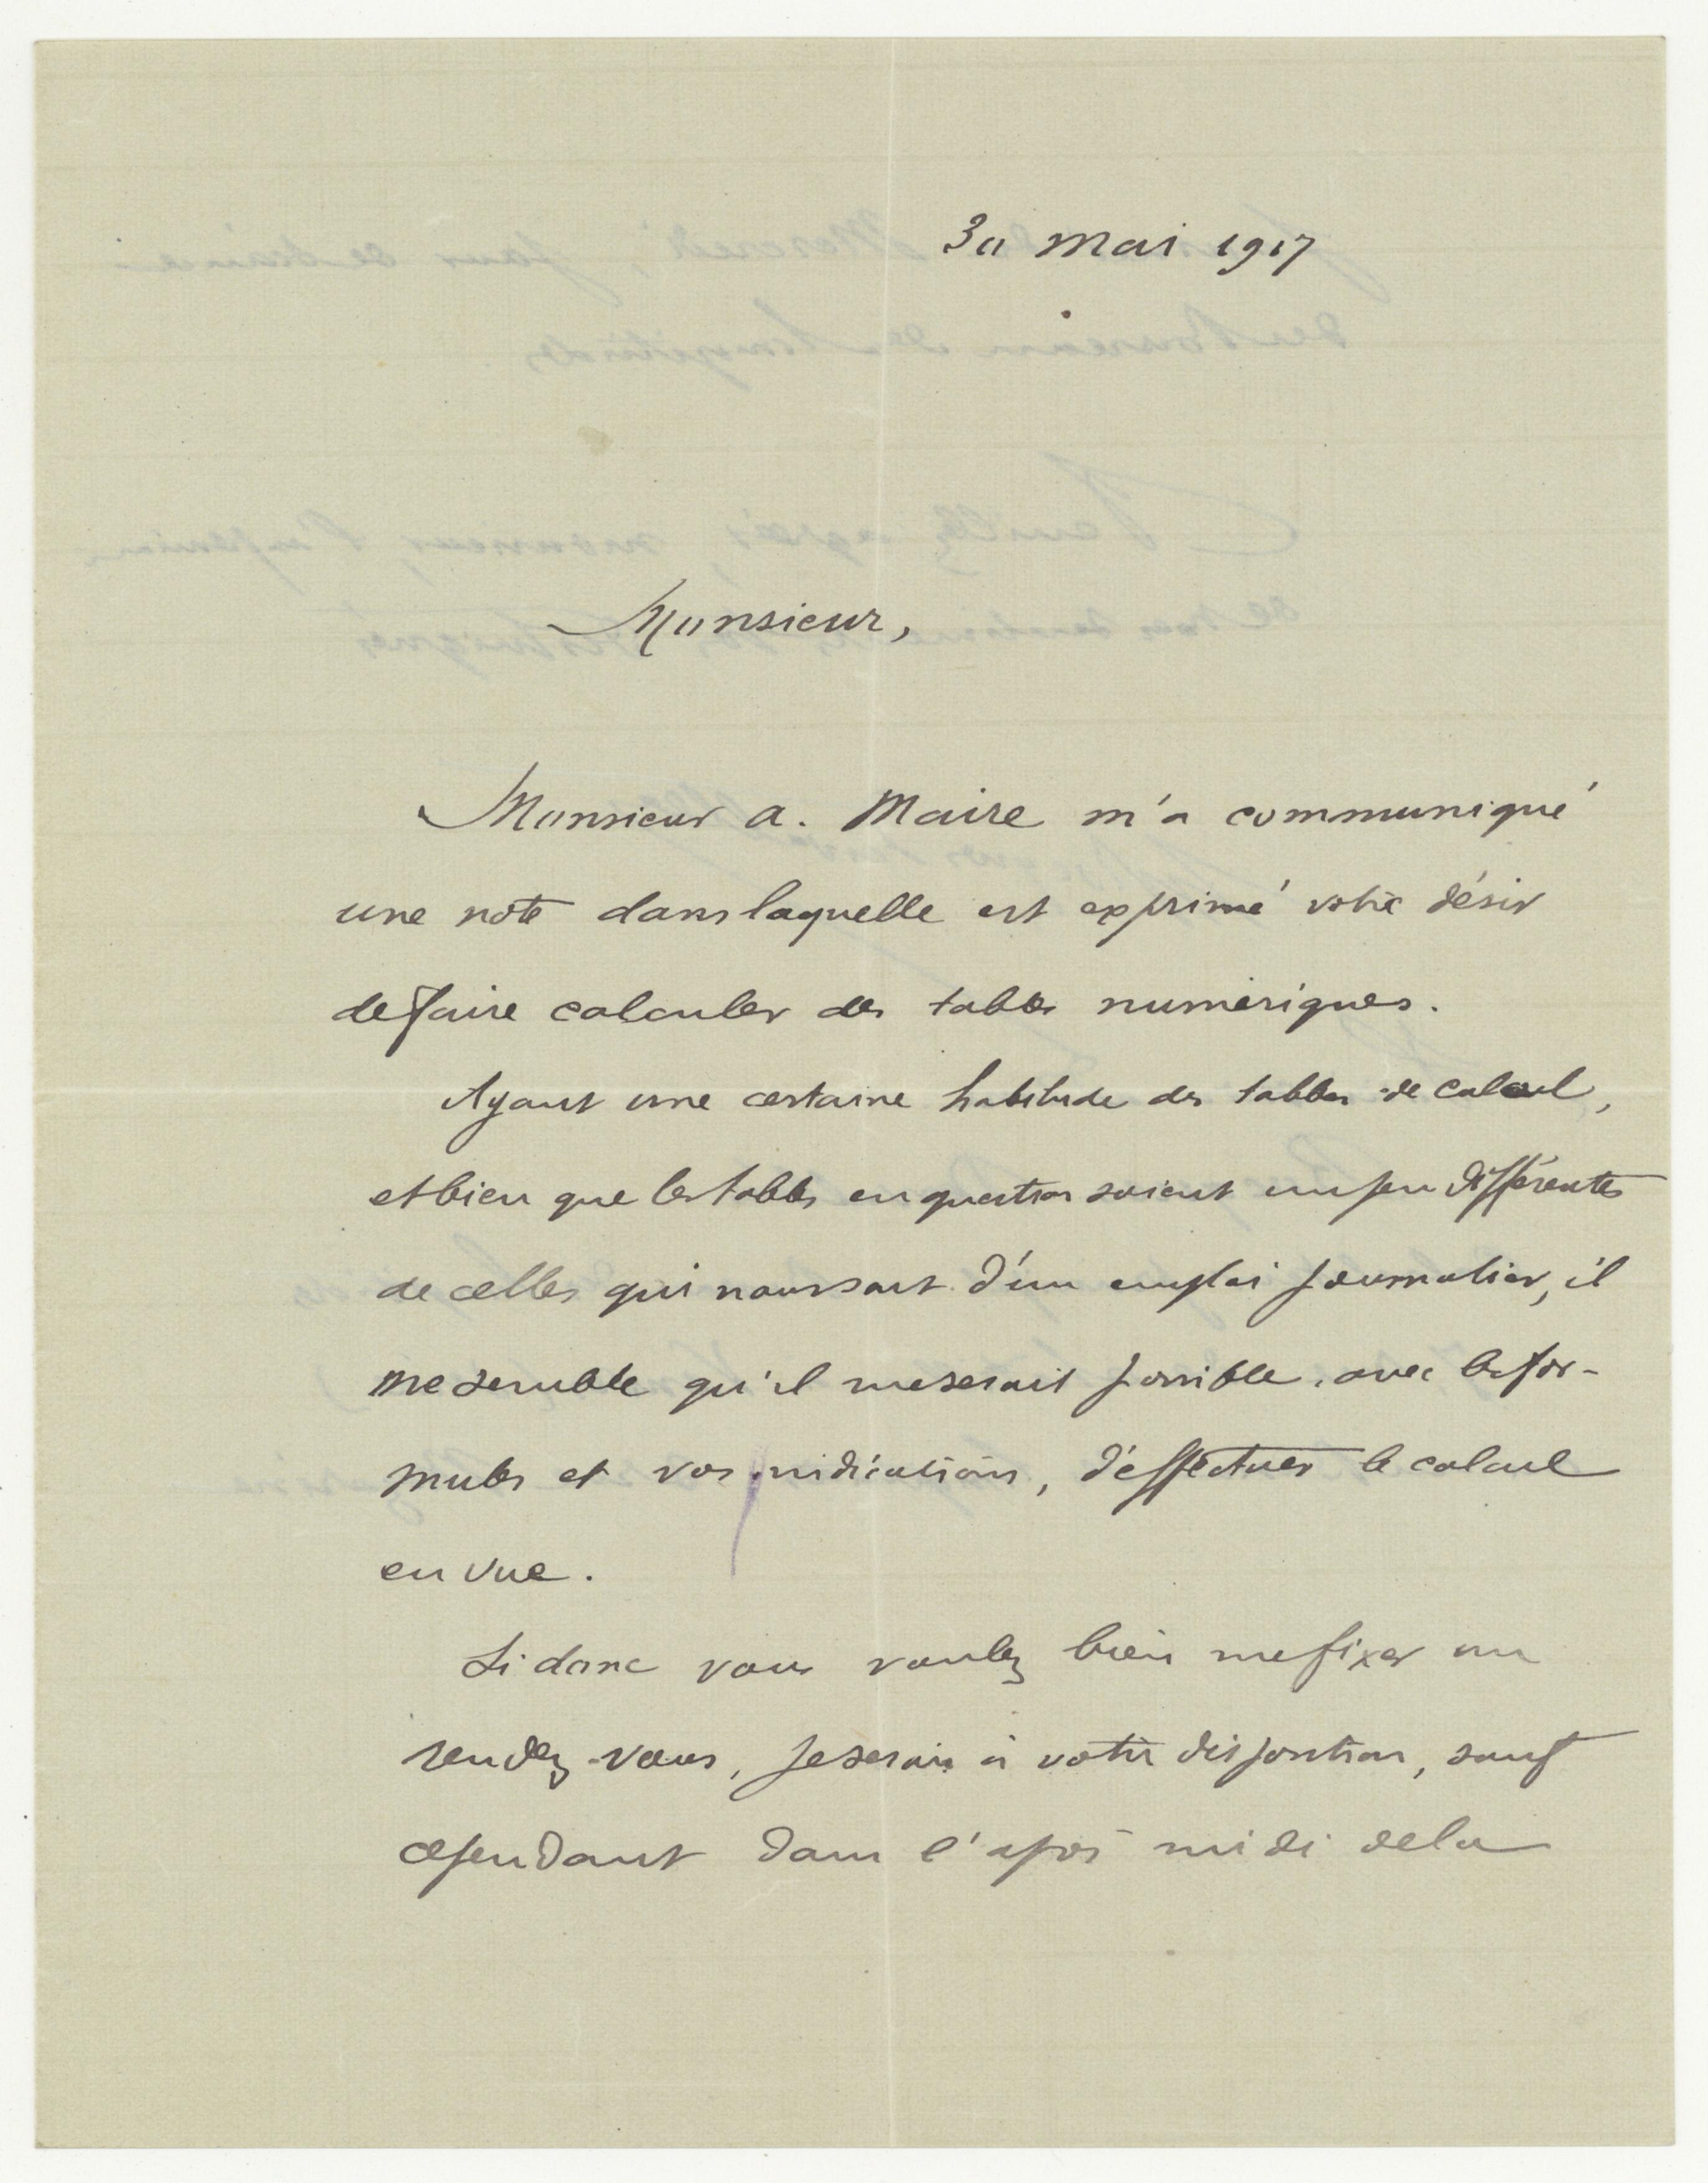 30 mai 1917
Monsieur,
Monsieur A. Maire m'a communiqué
une note dans laquelle est exprimé votre désir
de faire calculer des tables numériques.
Ayant une certaine habitude des tables de calcul,
et bien que les tables en question soient un peu différentes
de celles qui nous sont d'un emploi journalier, il
me semble qu'il me serait possible, avec les for-
mules et vos indications, d'effectuer le calcul
en vue.
Si donc vous voulez bien me fixer un
rendez-vous, je serais à votre disposition, sauf
cependant dans l'après midi de la